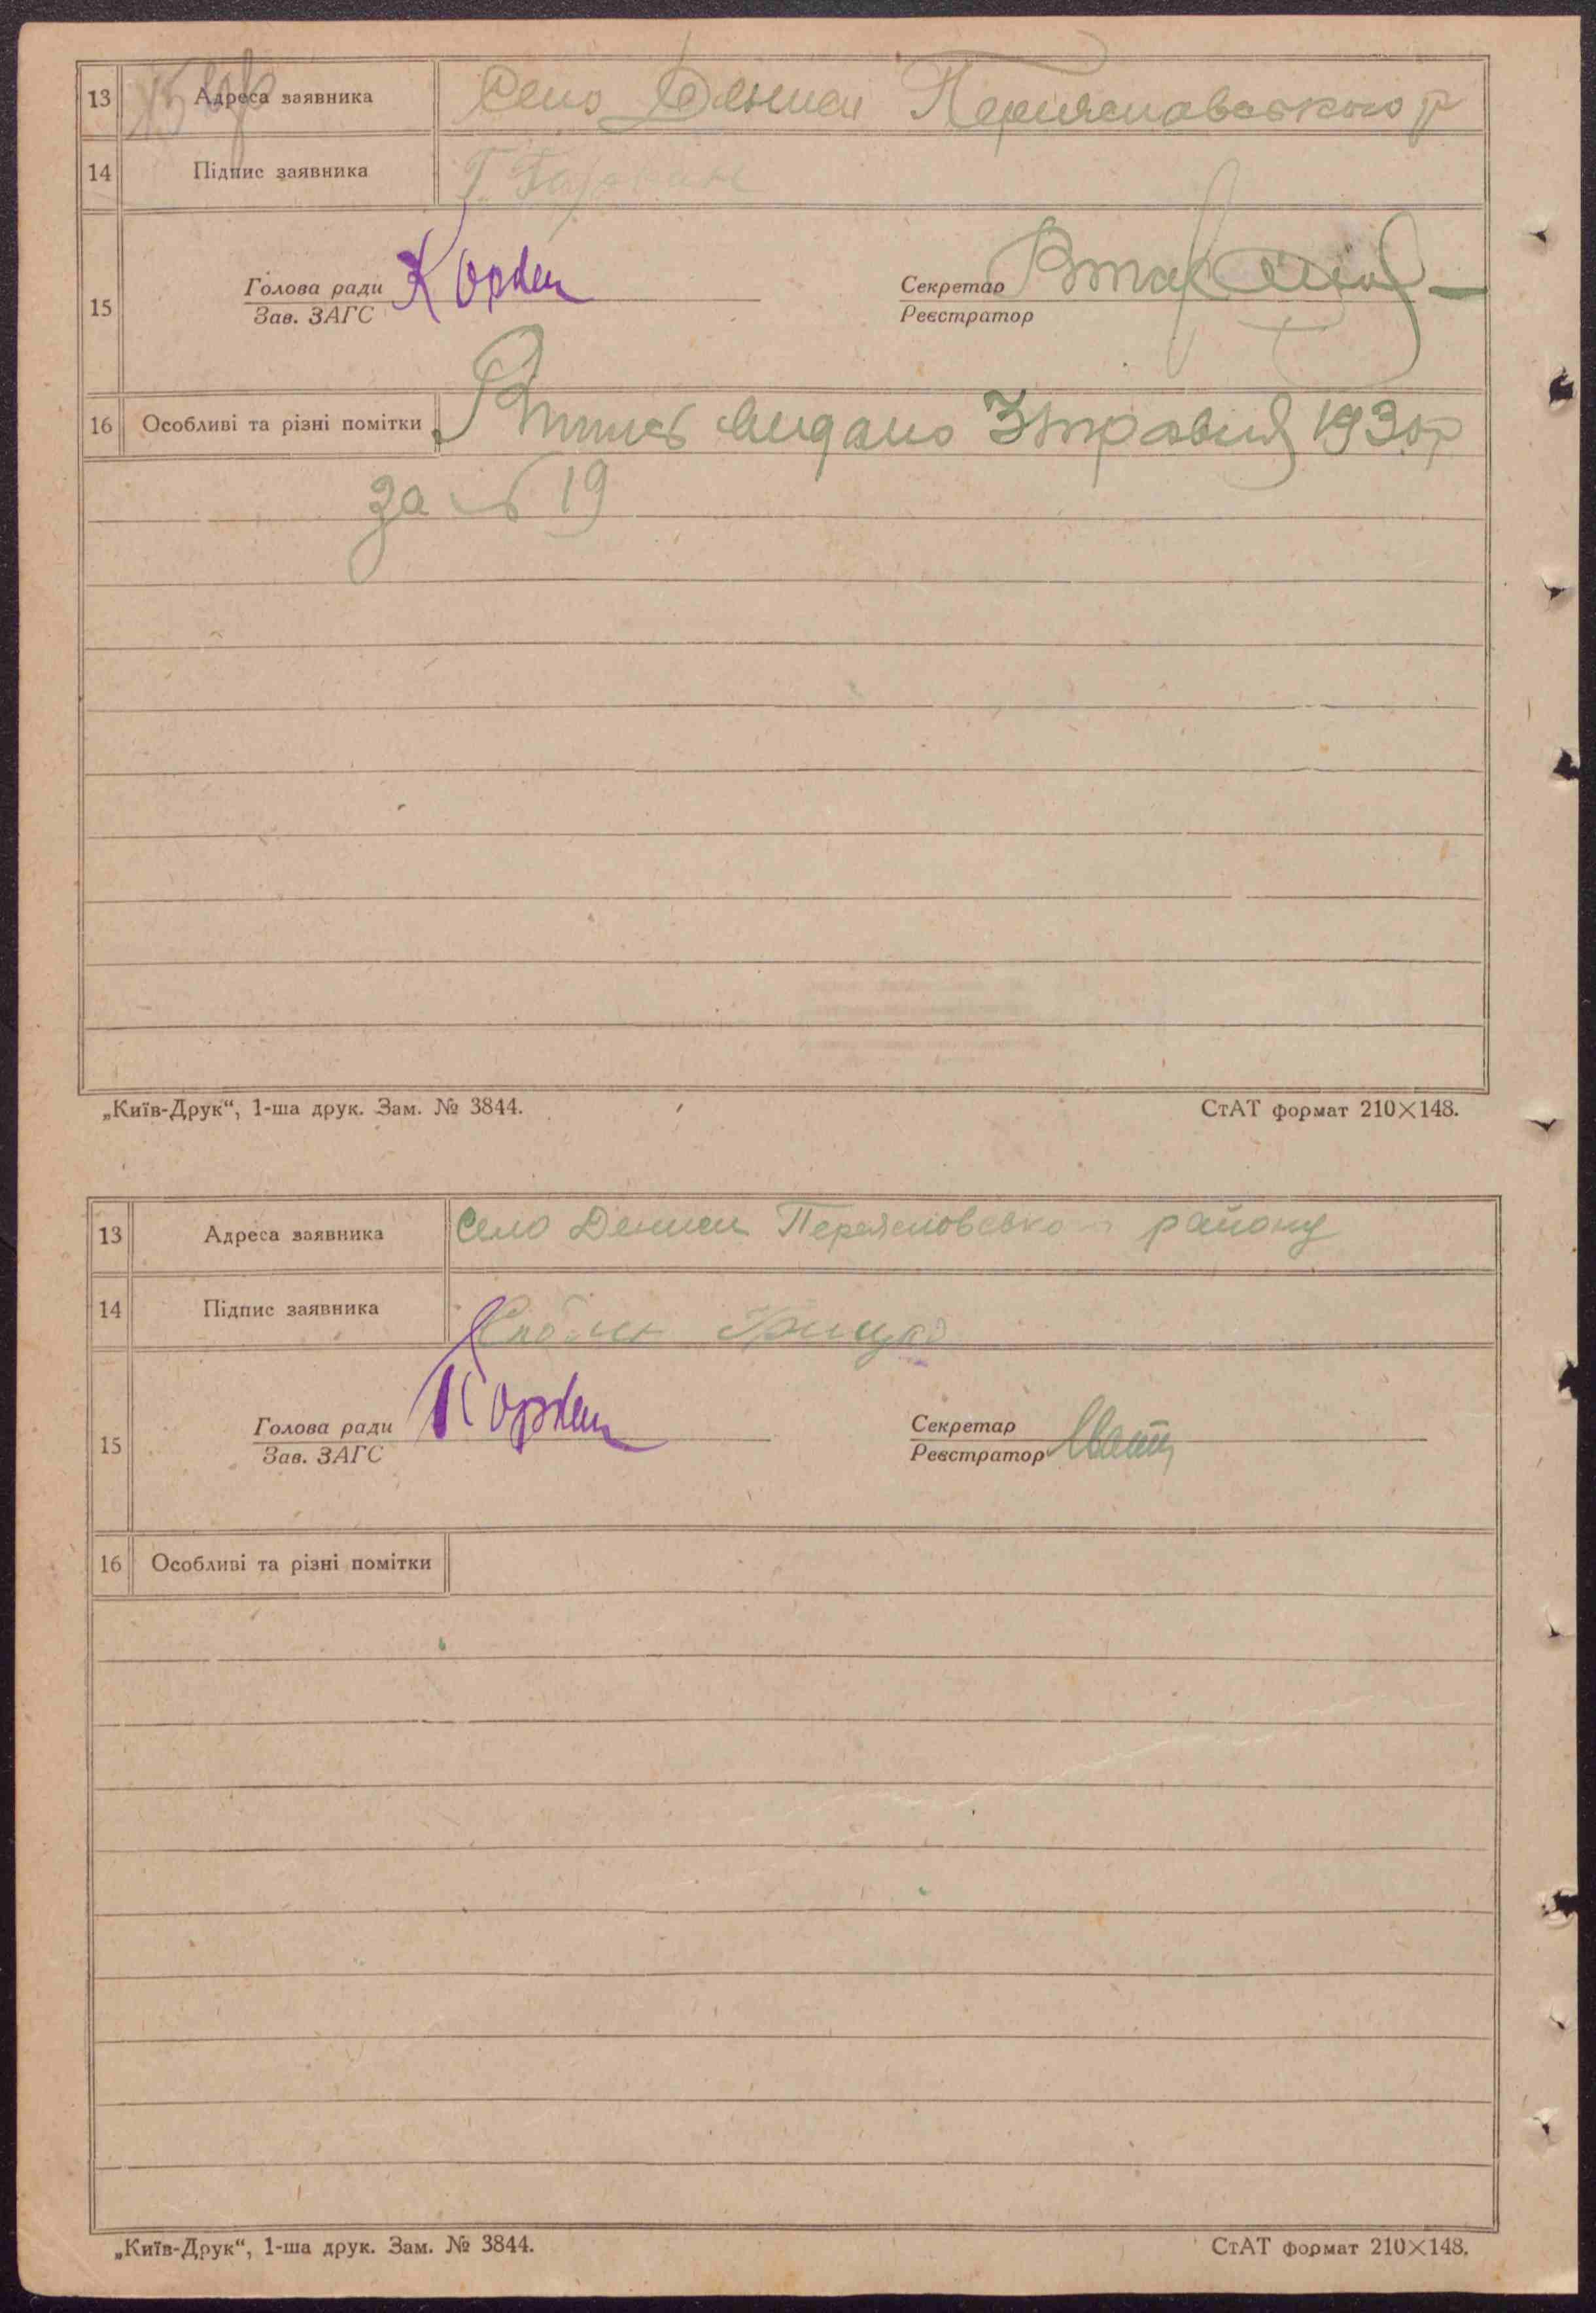 13 Адреса заявника Село Дениси Переяславського р
14 Підпис заявника
Голова ради Секретар
15
Зав. ЗАГС Реєстратор
16 Особливі та різні помітки видано 3 травня 1930р
за № 19
„Київ-Друк“, 1-ша друк. Зам. № 3844. СтАТ формат 210×148.
13 Адреса заявника Село Дениси Переяславсько району
14 Підпис заявника Грицко
Голова ради Секретар
15
Зав. ЗАГС Реєстратор
16 Особливі та різні помітки
„Київ-Друк“, 1-ша друк. Зам. № 3844. СтАТ формат 210×148.